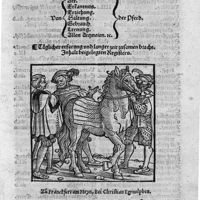 Art.
Erkantnus.
Erziehung.
Von Haltung. der Pferd.
Gebrauch.
Lernung.
Allen Artzneien. ꝛc.
Täglicher erfarung vnd langer zeit zusamen bracht.
Inhalt beigelegten Registers.
Zu Franckfurt am Meyn, Bei Christian Egenolphen.